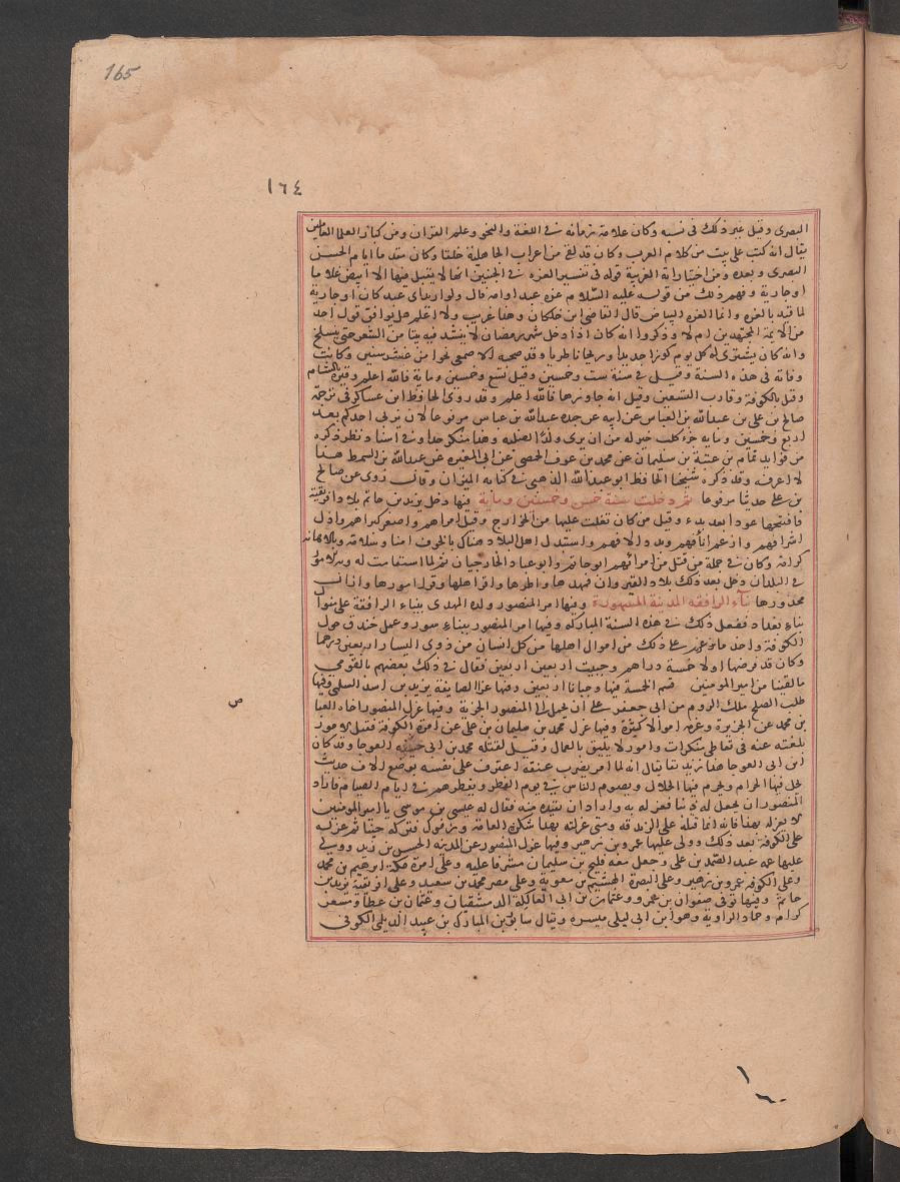 165
١٦٤
البصرى وقيل غير ذلك فى نسبه وكان علامة زمانه فى اللغة والنحو وعلم القران ومن كبار العلما العاملين
يقال انه كتب على بيت من كلام العرب وكان قد لقى من اعراب الجاهلية خلقا وكان مقدما ايام الحسن
البصرى وبعده ومن اختياراته الغريبة قوله فى تفسير الغره فى الجنين انها لا يقبل فيها الا ابيض غلاما
او جارية وفهم ذلك من قوله عليه السلام غره عبد او امه قال ولو اريد اى عبد كان او جارية
لما قيد بالغره وانما الغره البياض قال القاضى ابن خلكان وهذا غريب ولا اعلم هل يوافق قول احد
من الائمة المجتهدين ام لا وذكروا انه كان اذا دخل شهر رمضان لا ينشد فيه بيتا من الشعر حتى ينسلخ
وانه كان يشترى له كل يوم كوزا جديدا وريحانا طريا وقد صحبه الاصمعى نحوا من عشر سنين وكانت
وفاته فى هذه السنة وقيل فى سنة ست وخمسين وقيل تسع وخمسين وماية فالله اعلم وقبره بالشام
وقيل بالكوفة وقارب التسعين وقيل انه جاوزها فالله اعلم وقد روى الحافظ ابن عساكر فى ترجمة
صالح بن على بن عبدالله بن العباس عن ابيه عن جده عبدالله بن عباس مرفوعا لان يربى احدكم بعد
اربع وخمسين وماية جرو كلب خير له من ان يربى ولدا لصلبه وهذا منكر جدا وفى اسناده نظر وذكره
من فوايد تمام بن عتبة بن سليمان عن محمد بن عوف الحمصى عن ابى المغيره عن عبدالله بن السمط هذا
لا اعرفه وقد ذكره شيخنا الحافظ ابو عبدالله الذهبى فى كتابه الميزان وقال روى عن صالح
بن على حديثا مرفوعا ثم دخلت سنة خمس وخمسين وماية فيها دخل يزيد بن حاتم بلاد افريقية
فافتتحها عودا بعد بدء وقيل من كان تغلب عليها من الخوارج وقيل امراهم واصغر كبراهم واذل
اشرافهم وارغم انافهم وبدد الافهم واستبدل اهل البلاد هناك بالخوف امنا وسلامة وبالاهانه
كرامة وكان فى جملة من قتل من امرائهم ابو حاتم وابو عباد الخارجيان ثم لما استقامت له وبه الامور
فى البلدان دخل بعد ذلك بلاد القيروان فمهدها واطدها واقر اهلها وقرر امورها وازال
محذورها بناء الرافقه المدينة المشهورة وفيها امر المنصور ولده المهدى ببناء الرافقة على منوال
بناء بغداد ففعل ذلك فى هذه السنة المباركه وفيها امر المنصور ببناء سور وعمل خندق حول
الكوفة واخذ ما غرم على ذلك من اموال اهلها من كل انسان من ذوى اليسار اربعين درهما
وكان قد فرضها اولا خمسة دراهم وجبيت اربعين اربعين فقال فى ذلك بعضهم يالقومى
ما لقينا من امير المومنين قسم الخمسة فينا وجبانا اربعين وفيها غزا الصايفة يزيد بن اسد السلمى وفيها
طلب الصلح ملك الروم من ابى جعفر على ان يحمل الى المنصور الجزية وفيها عزل المنصور اخاه العباس
بن محمد عن الجزيرة وغرمه اموالا كثيرة وفيها عزل محمد بن سليمان بن على عن امرة الكوفة فقيل لامور
بلغته عنه فى تعاطى منكرات وامور لا يليق بالعمال وقيل لقتله محمد بن ابى العوجا وقد كان
ابن ابى العوجا هذا زنديقا يقال انه لما امر بضرب عنقه اعترف على نفسه بوضع الاف حديث
يحل فيها الحرام ويحرم فيها الحلال ويصوم الناس فى يوم الفطر ويفطرهم فى ايام الصيام فاراد
المنصور ان يجعل له ذنبا فعزله به واراد ان يقيده منه فقال له عيسى بن موسى يا امير المومنين
لا تعزله بهذا فانه انما قتله على الزندقه ومتى عزلته بهذا شكره العامة وذموك فتركه حينا ثم عزله
على الكوفة بعد ذلك وولى عليها عمرو بن زهير وفيها عزل المنصور عن المدينه الحسن بن زيد وولى
عليها عمه عبد الصمد بن على وجعل معه فليح بن سليمان مشرفا عليه وعلى امرة مكة ابرهيم بن محمد
وعلى الكوفه عمرو بن زهير وعلى البصرة الهيثم بن معوية وعلى مصر محمد بن سعيد وعلى افريقية يزيد بن
حاتم وفيها توفى صفوان بن عمرو وعثمان بن ابى العاتكة الدمشقيان وعثمان بن عطا ومسعر
كدام وحماد الراوية وهو ابن ابى ليلى ميسره ويقال سابور بن المبارك بن عبيد الديلمى الكوفى
ص